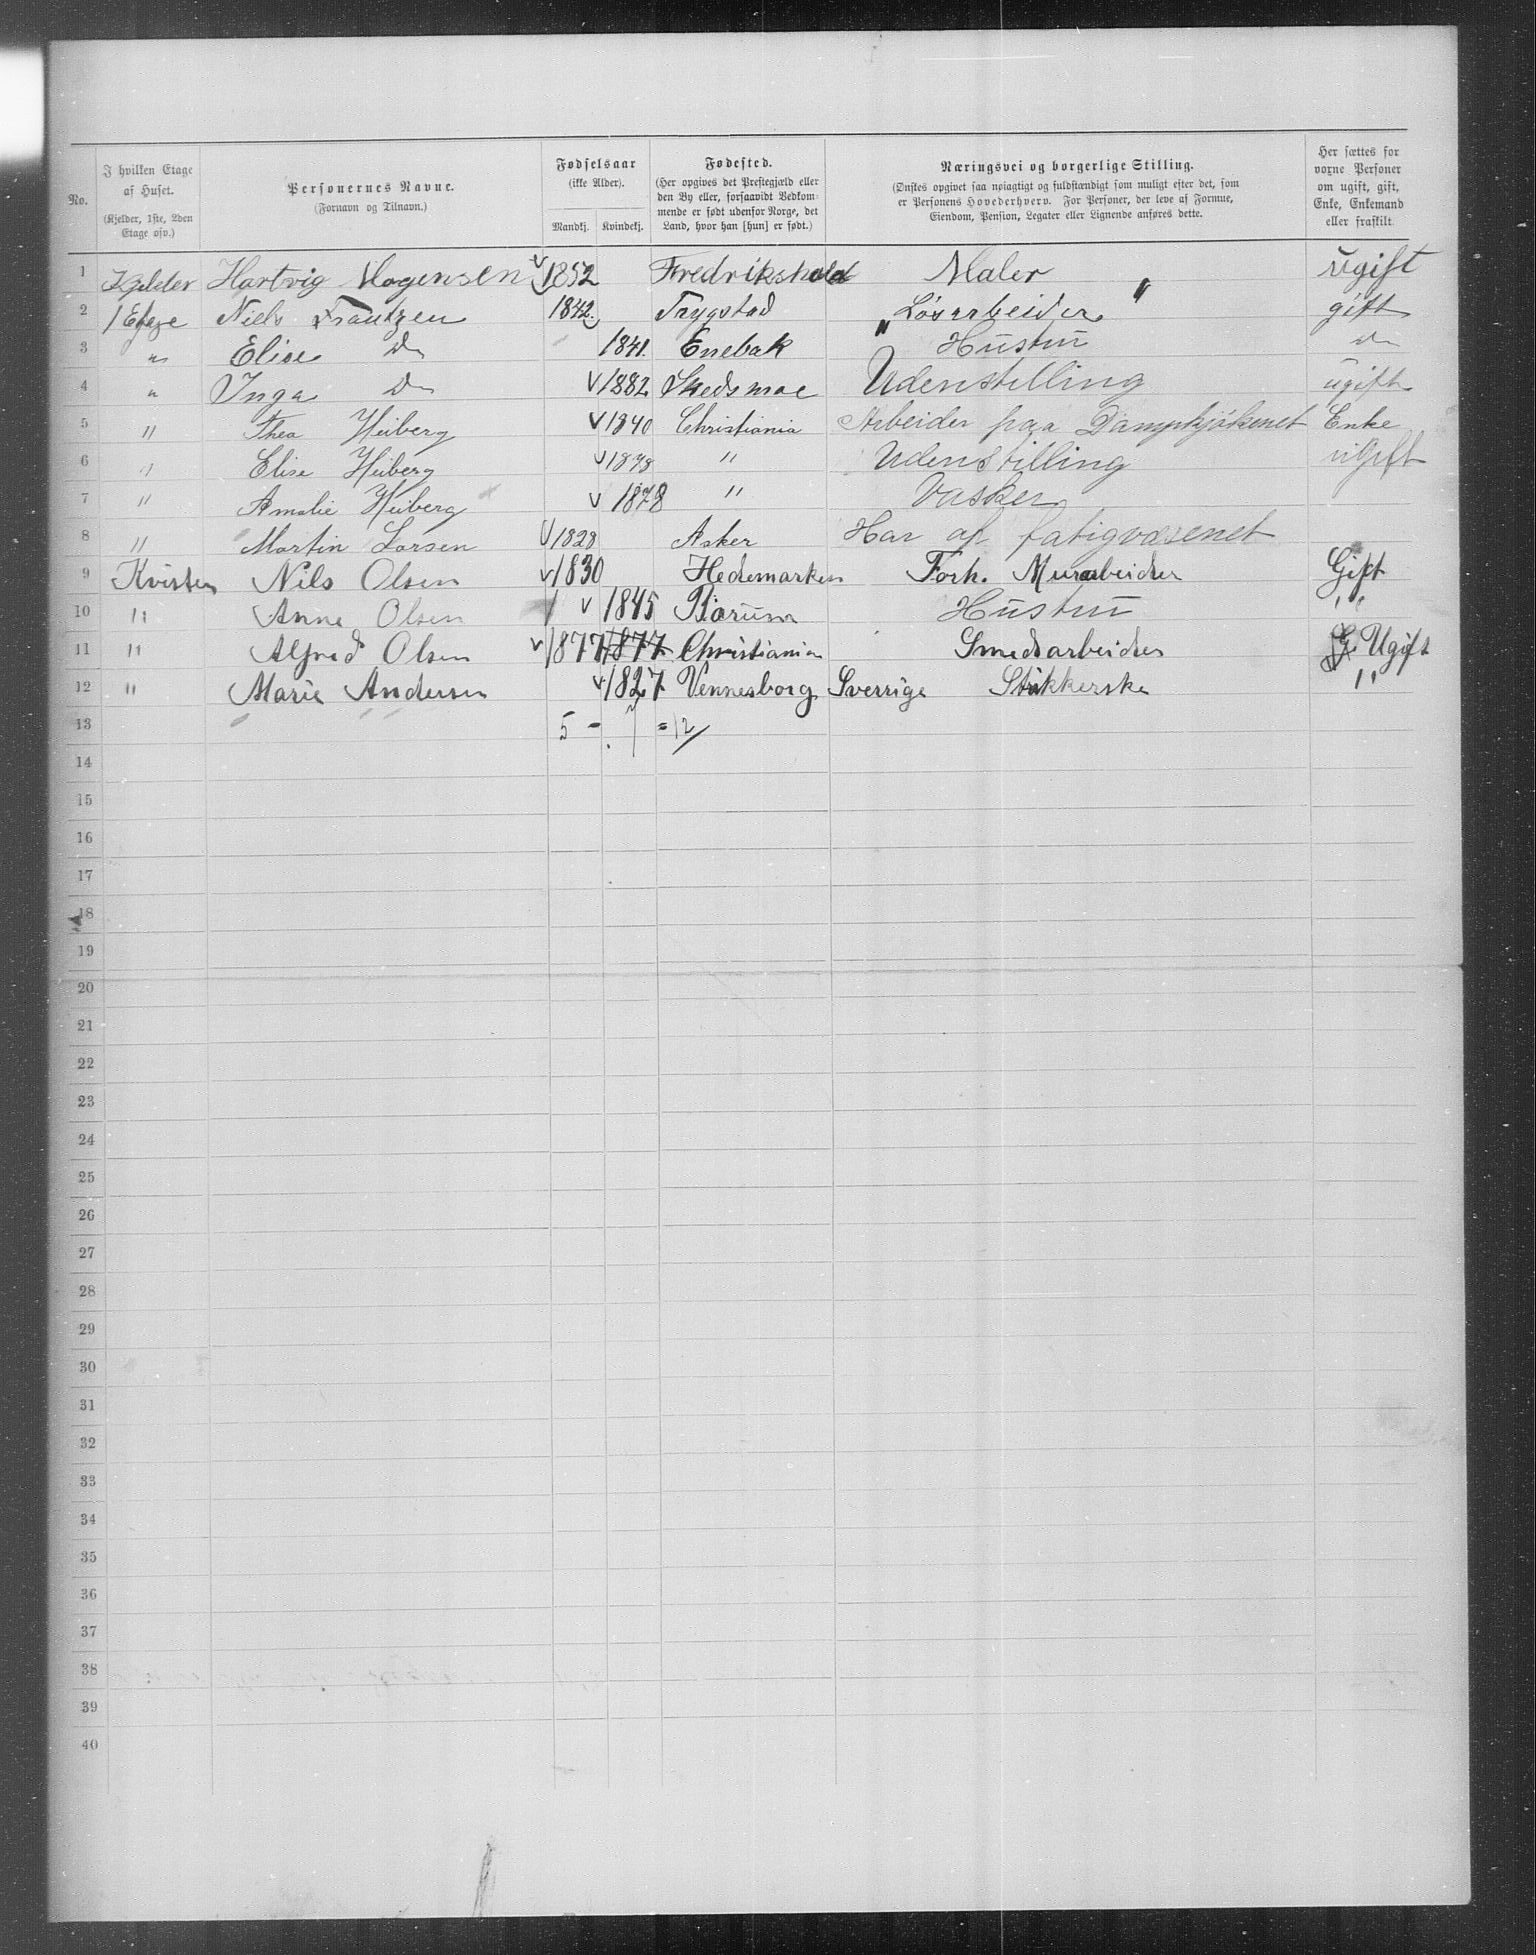 No.
I hvilken Etage af Huset. (Kjelder, 1ste, 2den Etage osv.)
Personernes Navne. (Fornavn og Tilnavn.)
Fødselsaar (ikke Alder). Mandkj. Kvindekj.
Fødested. (Her opgives det Prestegjæld eller den By eller, forsaavidt Vedkommende er født udenfor Norge, det Land, hvor han [hun] er født.)
Næringsvei og borgerlige Stilling. (Ønskes opgivet saa nøiagtigt og fuldstændigt som muligt efter det, som er Personens Hovederhverv. For Personer, der leve af Formue, Eiendom, Pension, Legater eller Lignende anføres dette.)
Her sættes for vorne Personer om ugift, gift, Enke, Enkemand eller fraskilt.
1 Kjelder Hartvig Mogensen 1852 Fredrikshald Maler " ugift
2 1 Etage Niels Frantzen 1842 Trygstad " Løsarbeider gift
3 " Elise Do 1841. Enebak Hustru Do
4 " Inga Do 1882 Skedsmoe Udenstilling ugift
5 " Thea Heiberg 1840 Christiania Arbeider paa Dampkjökenet Enke
6 " Elise Heiberg 1878 " Udenstilling ugift
7 " Amalie Heiberg 1878 " Vasker
8 " Martin Larsen 1828 Asker Har af fatigvæsenet
9 Kvisten Nils Olsen 1830 Hedemarken Forh. Murarbeider Gift
10 " Anne Olsen 1845 Bærum Hustru "
11 " Alfred Olsen 1877 1877 Christiania Smedarbeider G Ugift
12 " Marie Andersen 1827 Vennesborg Sverrige Strikkerske "
13 5 - 7 = 12
14
15
16
17
18
19
20
21
22
23
24
25
26
27
28
29
30
31
32
33
34
35
36
37
38
39
40